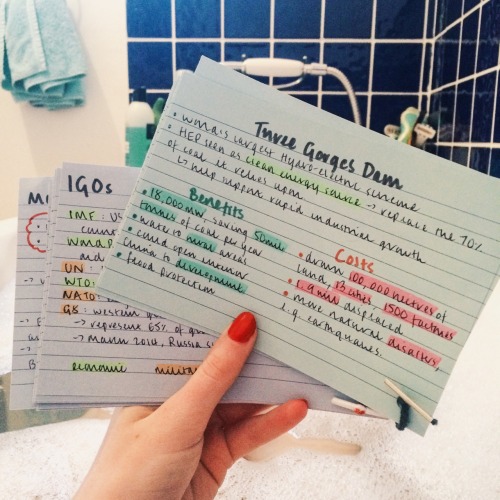 Three Gorges Dam
• world's largest hydro-electric scheme
• HEP seen as clean energy source → replace the 70%
of coal it relies upon
↳ help support rapid industrial growth
Benefits
• 18,000MW saving 50mil
tonnes of coal per year
• water to rural areas
• could open interior
China to development
• flood protection
Costs
• drown 100,000 hectres of
land, 13 cities 1500 factories
• 1.9mil displaced
• more natural disasters,
e.g. earthquakes.
IGOs
IMF: US
WMAP
and
UN:
WTO:
NATO:
G8: western
→ represent 65% of
→ March 2014, Russia
economic